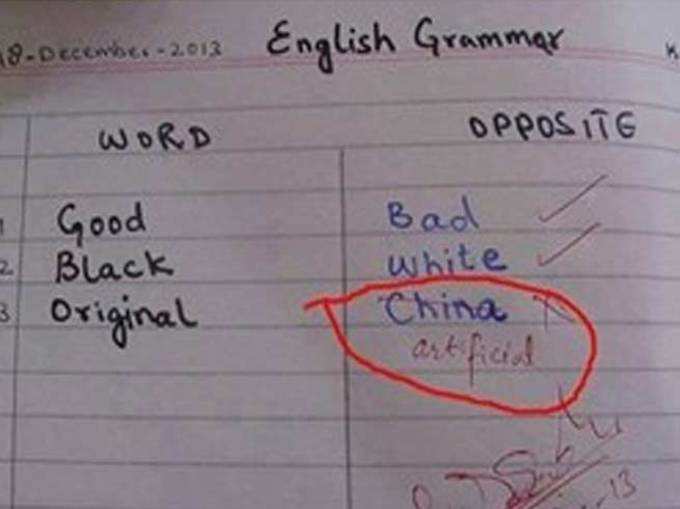 18-December-2013 English Grammar K
WORD OPPOSITE
1 Good Bad
2 Black White
3 Original China
artificial